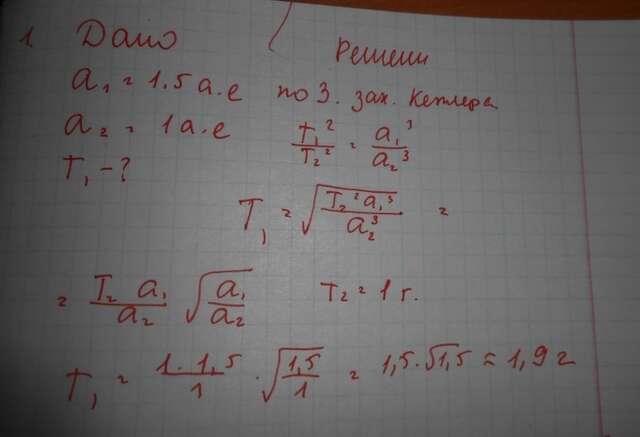 1. Дано
Решени
a₁ = 1.5 а.е
по 3. зак. Кеплера
a₂ = 1 а.е
T₁²/T₂² = a₁³/a₂³
T₁ - ?
T₁ = √(T₂² a₁³ / a₂³) =
= T₂ a₁ / a₂ √(a₁/a₂)
T₂ = 1 г.
T₁ = 1·1,5 / 1 · √(1,5/1) = 1,5·√1,5 ≈ 1,9 г